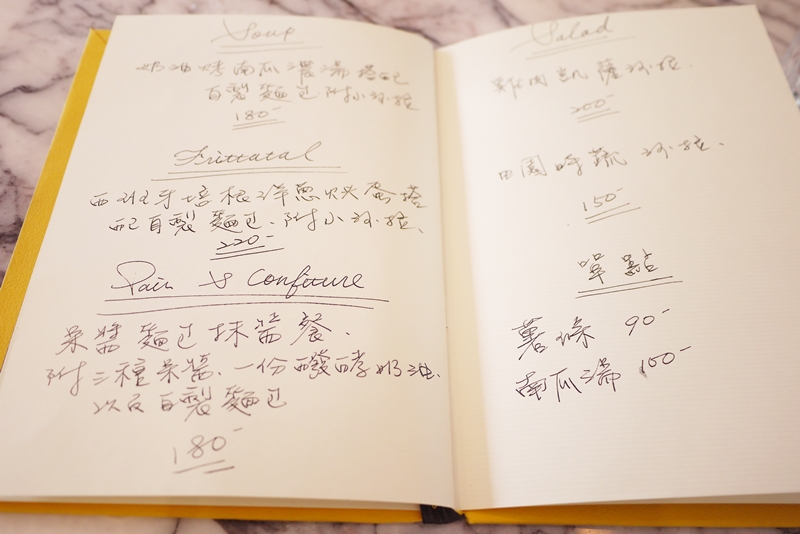 Soup
奶油烤南瓜濃湯搭配
自製麵包附小沙拉
180-
Frittatal
西班牙培根洋蔥烘蛋搭
配自製麵包、附小沙拉、
220-
Pain & Confiture
果醬麵包抹醬餐、
附三種果醬、一份發酵奶油、
以及自製麵包
180-
Salad
雞肉凱薩沙拉、
200-
田園時蔬沙拉、
150-
單點
薯條 90-
南瓜湯 100-